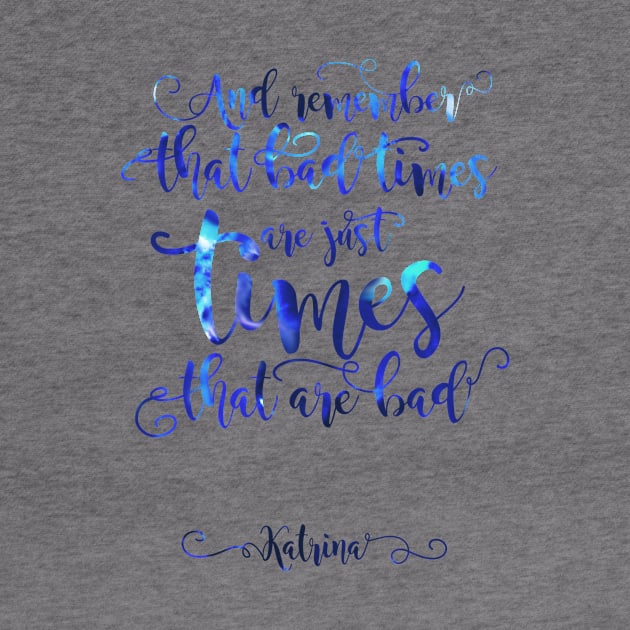 And remember
that bad times
are just
times
that are bad
Katrina